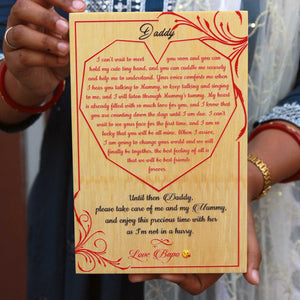 Daddy
I can't wait to meet you soon and you can
hold my cute tiny hand, and you can cuddle me securely
and help me to understand. Your voice comforts me when
I hear you talking to Mummy, so keep talking and singing
to me, and I will listen through Mummy's tummy. My heart
is already filled with so much love for you, and I know that
you are counting down the days until I am due. I can't
wait to see your face for the first time, and I am so
lucky that you will be all mine. When I arrive,
I am going to change your world and we will
finally be together, the best feeling of all is
that we will be best friends
forever.
Until then Daddy,
please take care of me and my Mummy,
and enjoy this precious time with her
as I'm not in a hurry.
Love Bapa